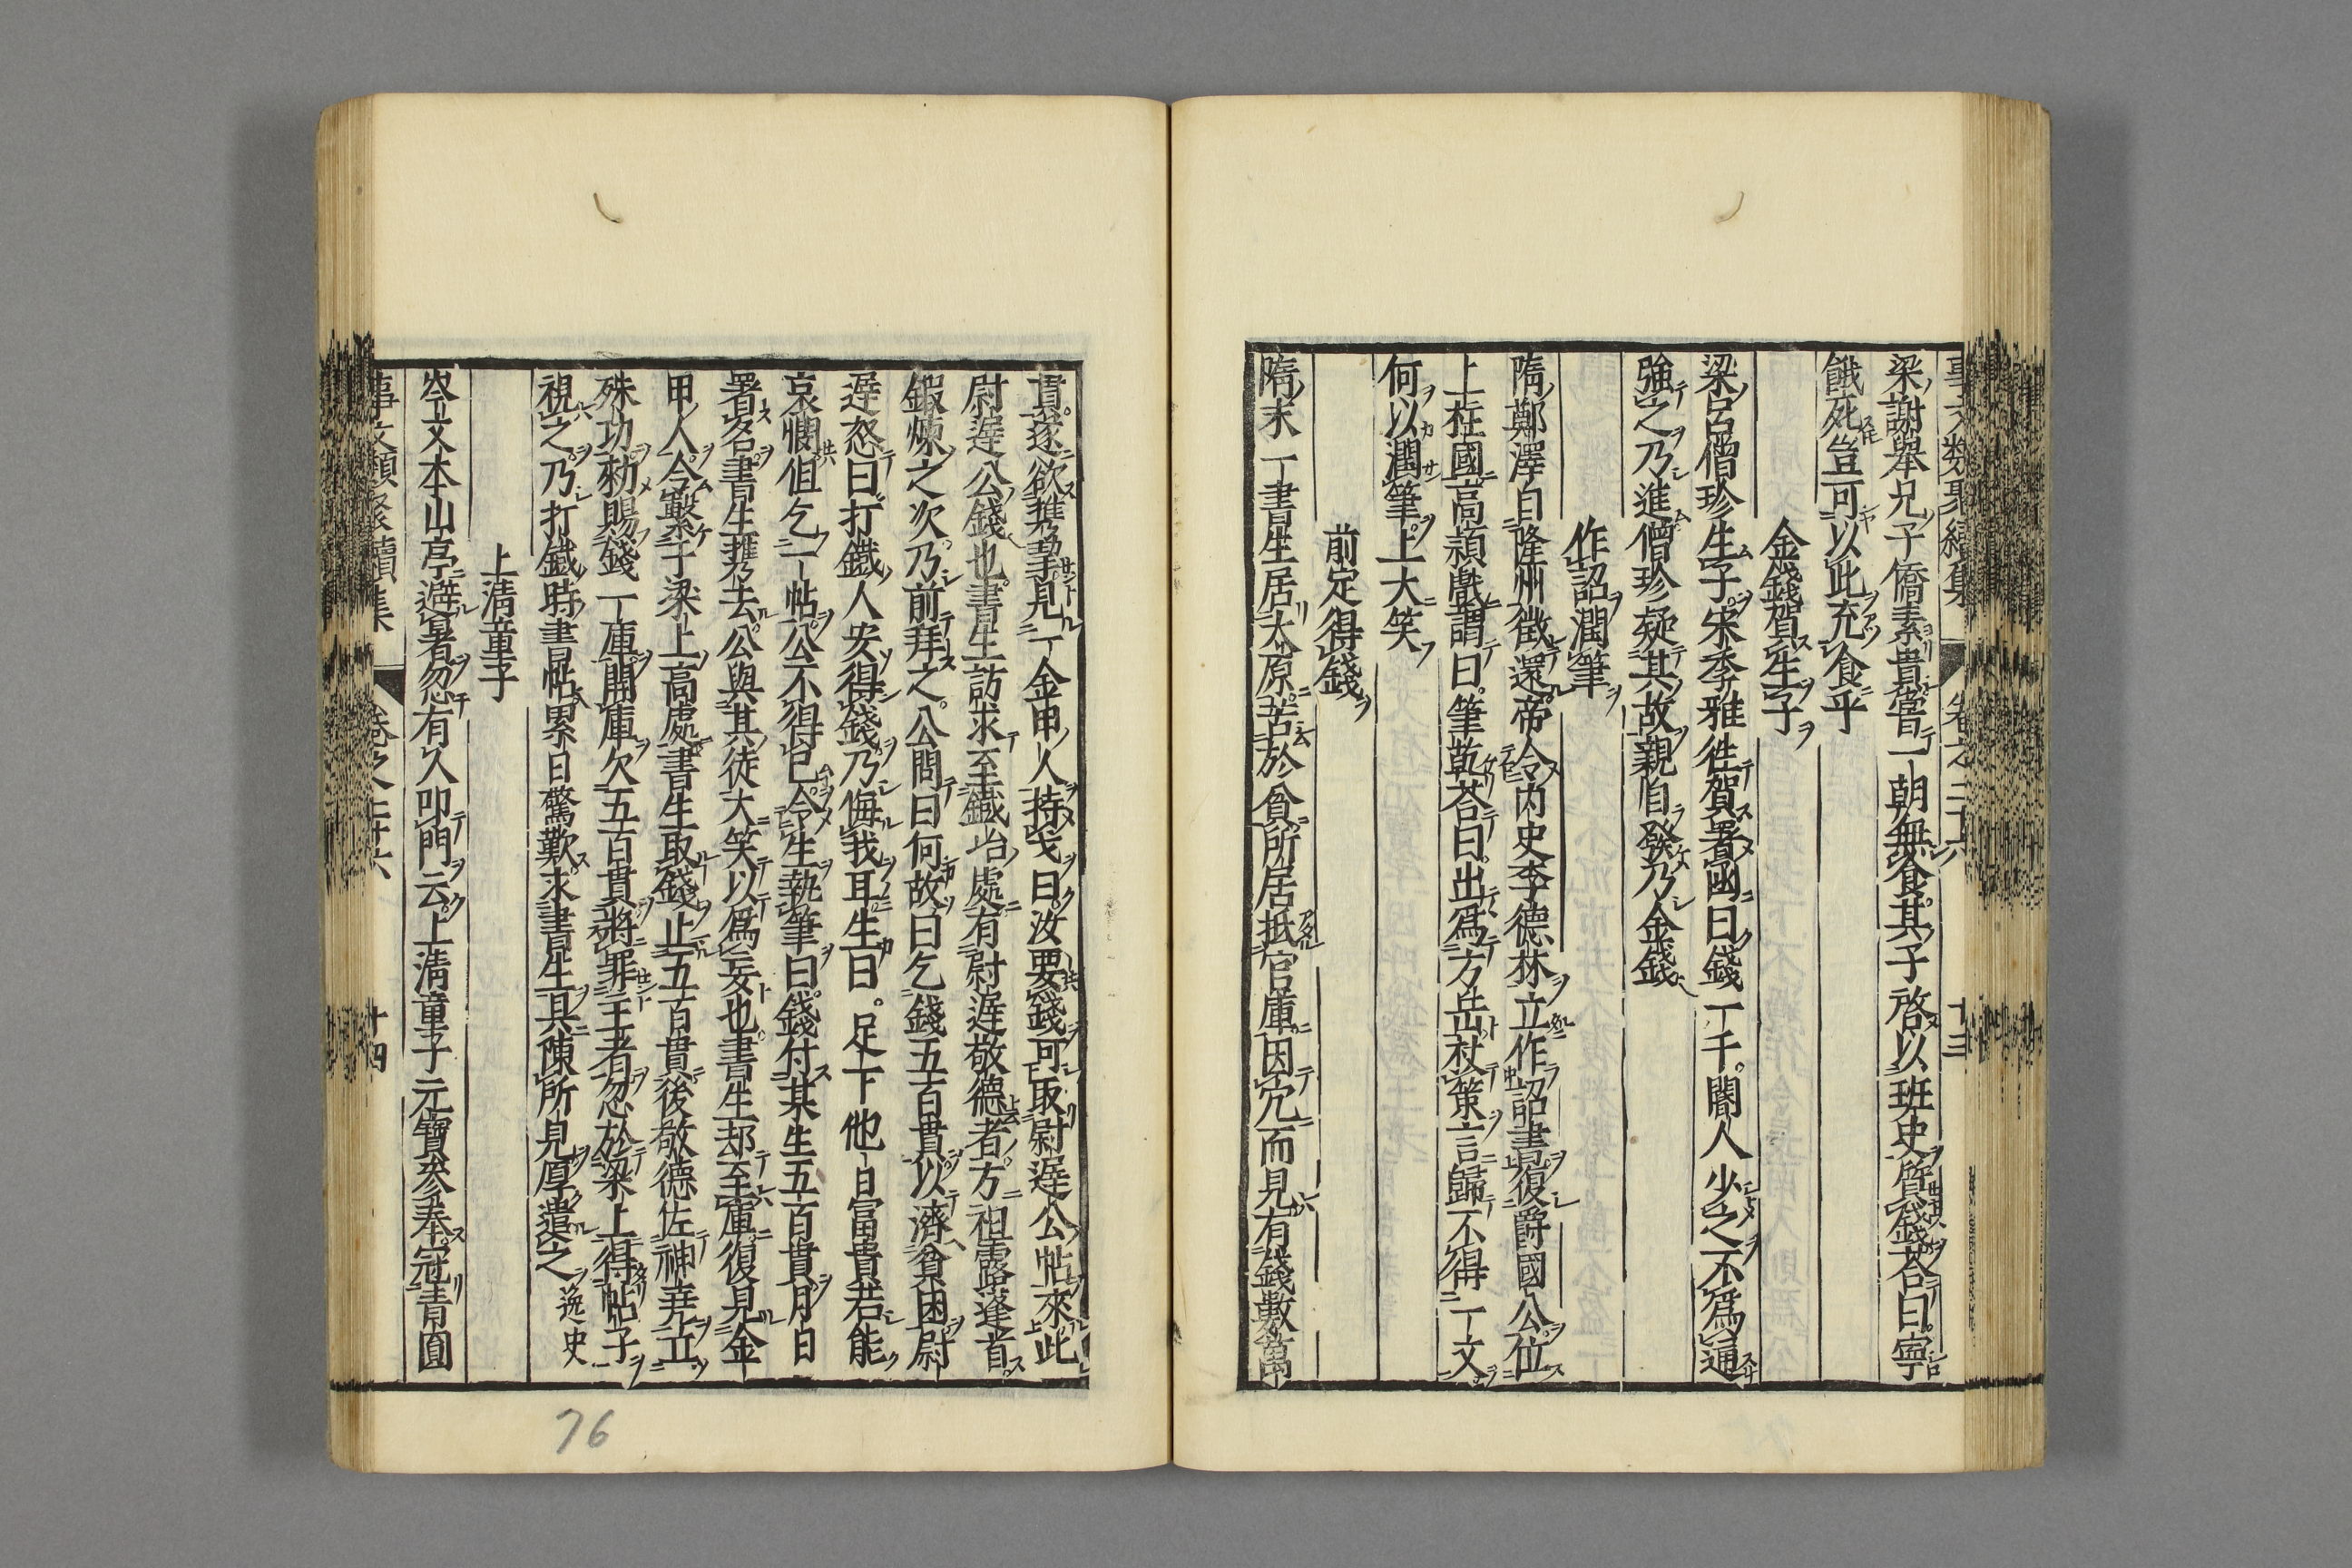 事文類聚續集 卷之二十六 十三
梁謝舉兄子僑素貴嘗一朝無食其子啓以班史質錢荅曰寧
餓死豈可以此充食乎
金錢賀生子
梁呂僧珍生子宋季雅徃賀署函曰錢一千閽人少之不爲通
強之乃進僧珍疑其故親自發乃金錢
作詔潤筆
隋鄭澤自隆州徵還帝令内史李德林立作詔書復爵國公位
上柱國高熲戲謂曰筆乾荅曰出爲方岳杖策言歸不得一文
何以潤筆上大笑
前定得錢
隋末一書生居太原苦於貧所居抵官庫因穴而見有錢數萬
貫遂欲携挈見一金甲人持戈曰汝要錢可取尉遲公帖來此
尉遲公錢也書生訪求至鐵冶處有尉遲敬德者方袒露蓬首
鍜煉之次乃前拜之公問曰何故曰乞錢五百貫以濟貧困尉
遲怒曰打鐵人安得錢乃侮我耳生曰足下他日富貴若能
哀憫但乞一帖公不得已令生執筆曰錢付某生五百貫月日
署名書生携去公與其徒大笑以爲妄也書生却至庫復見金
甲人令繫于梁上高處書生取錢止五百貫後敬德佐神堯立
殊功勑賜錢一庫開庫欠五百貫將罪主者忽於梁上得帖子
視之乃打鐵時書帖累日驚歎求書生具陳所見厚遺之 逸史
上淸童子
岑文本山亭避暑忽有久叩門云上淸童子元寶參奉冠青圓
事文類聚續集 卷之二十六 十四
76